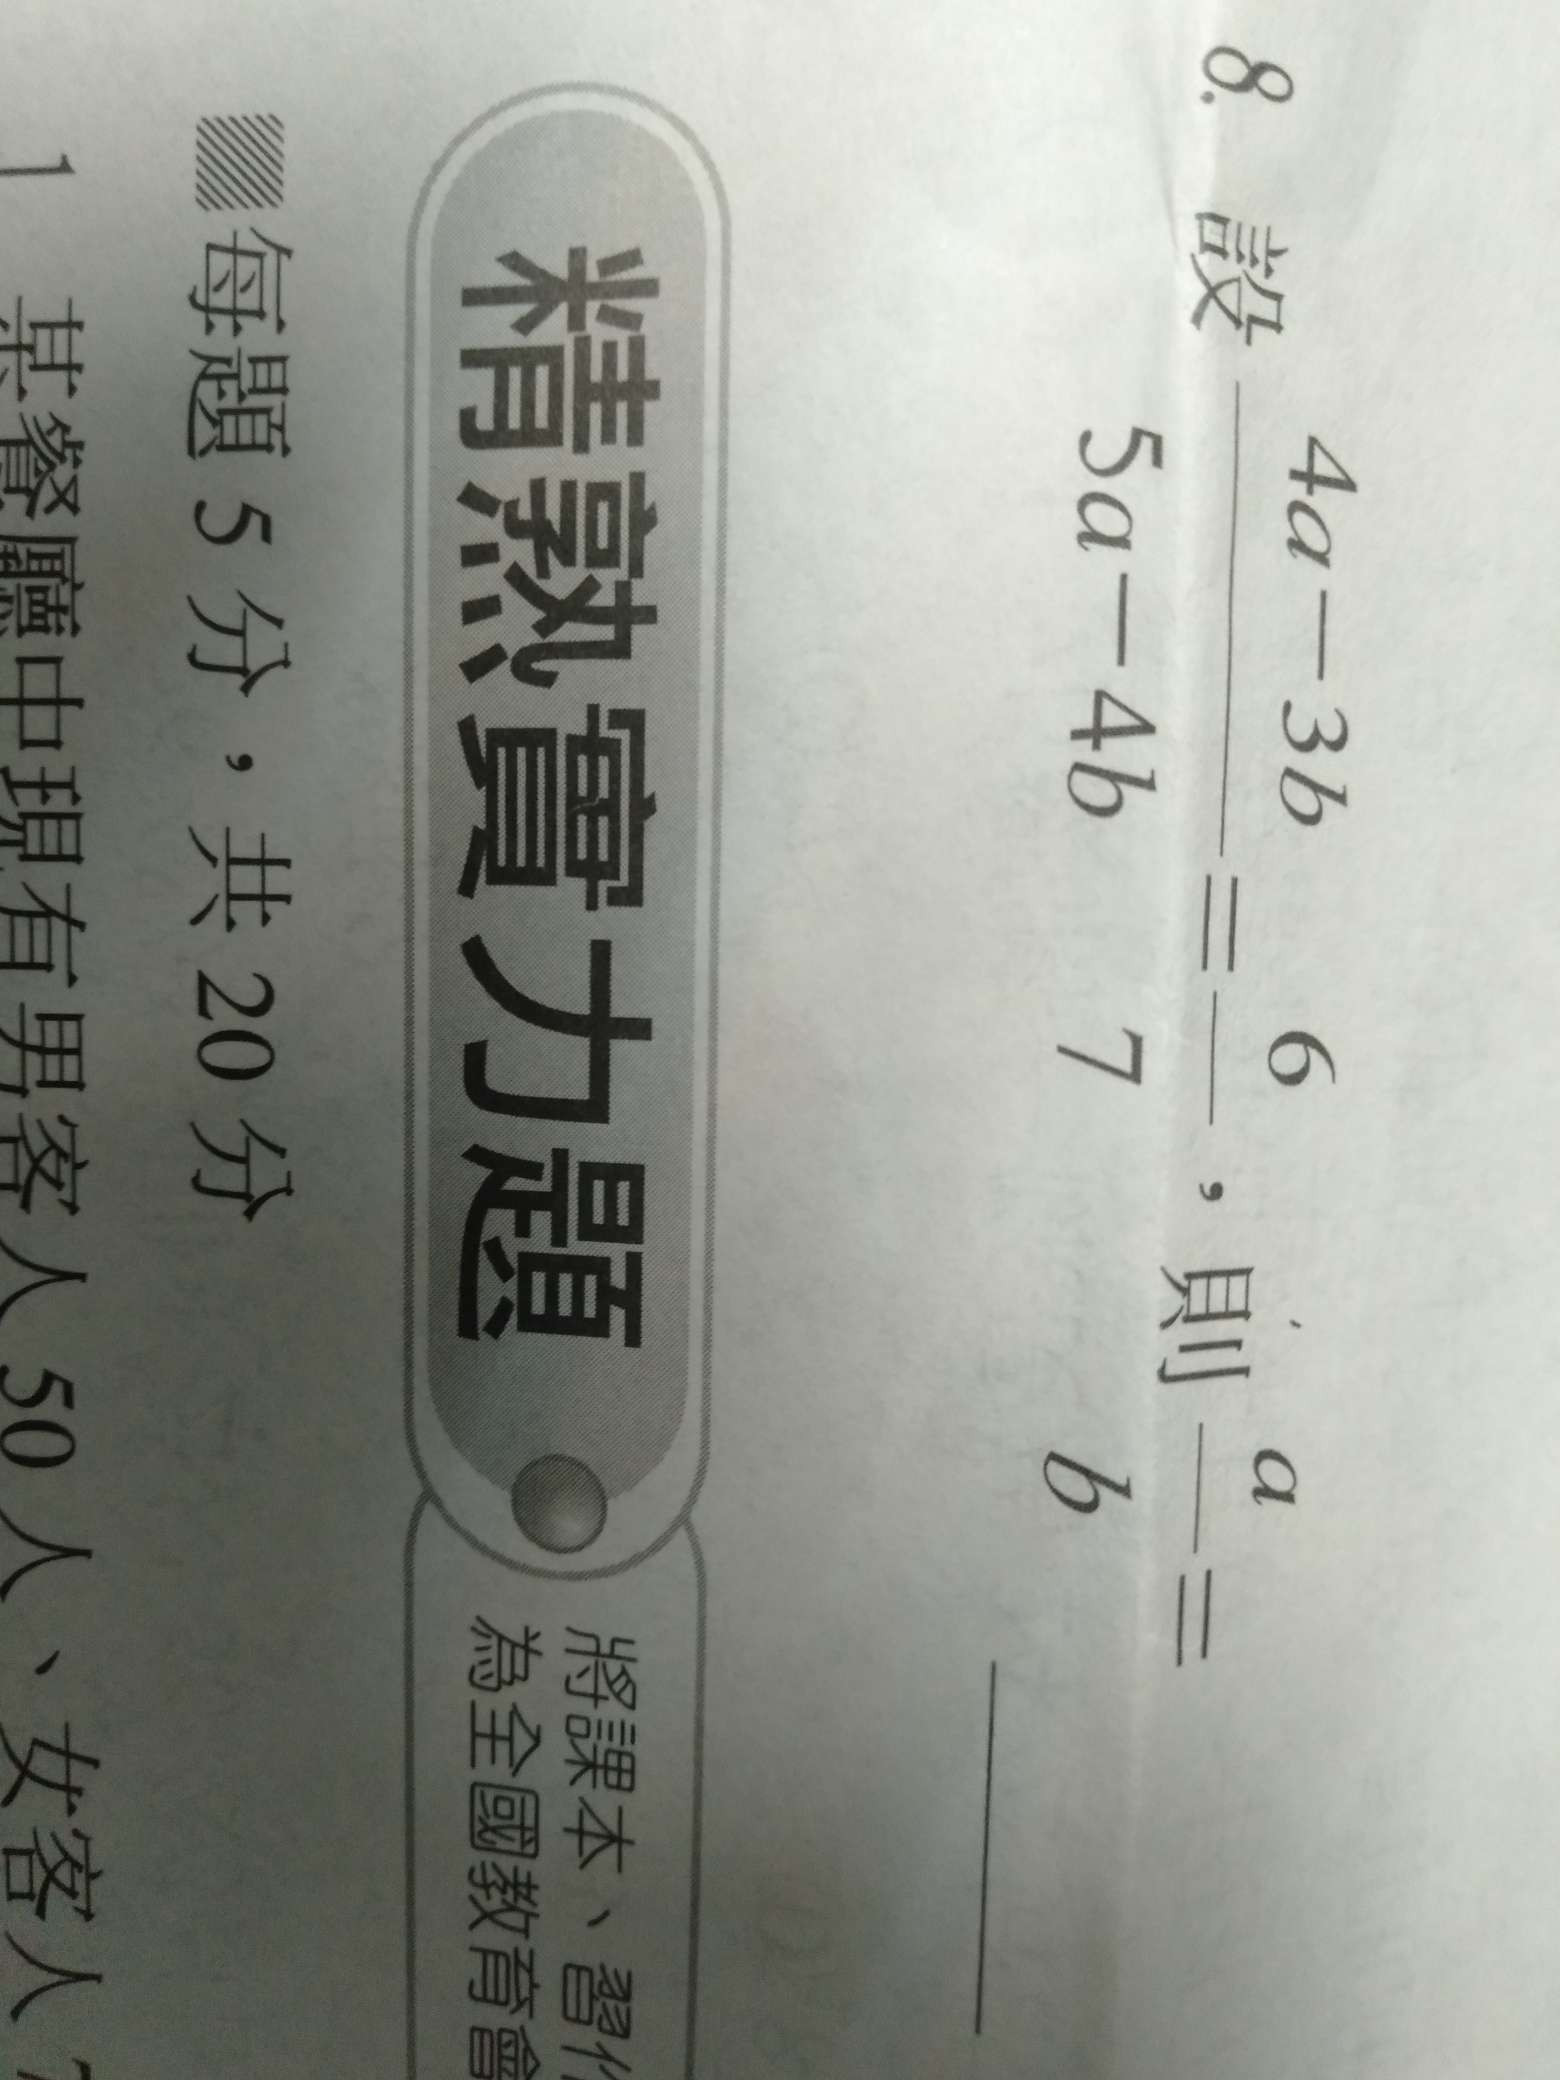 8. 設 (4a－3b)/(5a－4b)＝6/7，則 a/b＝
精熟實力題
將課本、習作
為全國教育會
每題 5 分，共 20 分
1 某餐廳中現有男客人 50 人、女客人